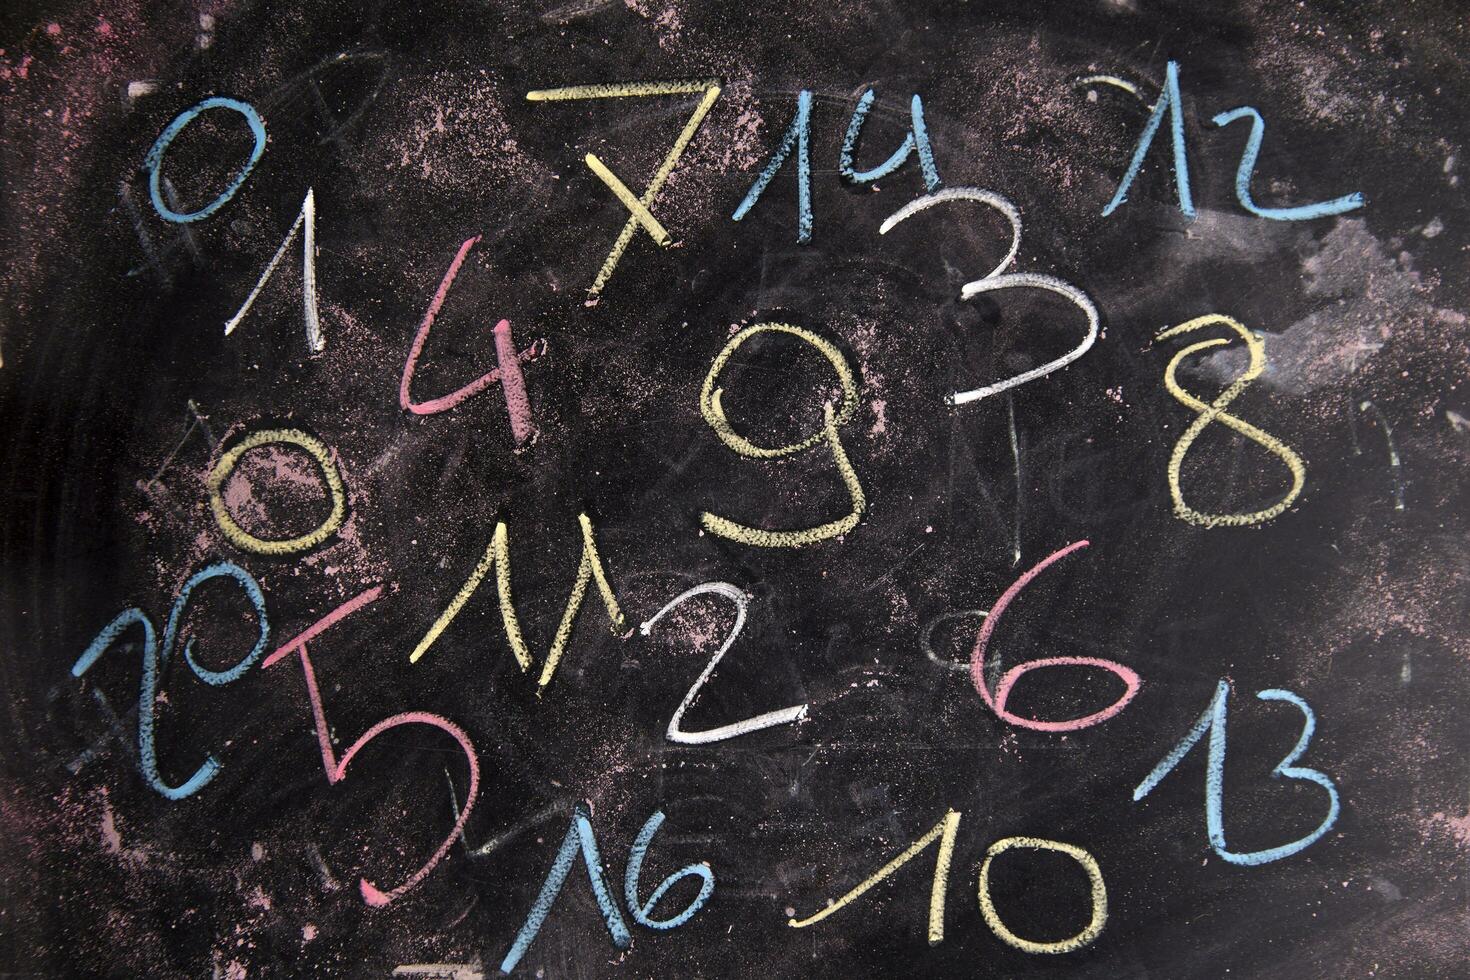 0
7
14
12
1
4
3
9
8
0
11
2
6
20
5
13
16
10